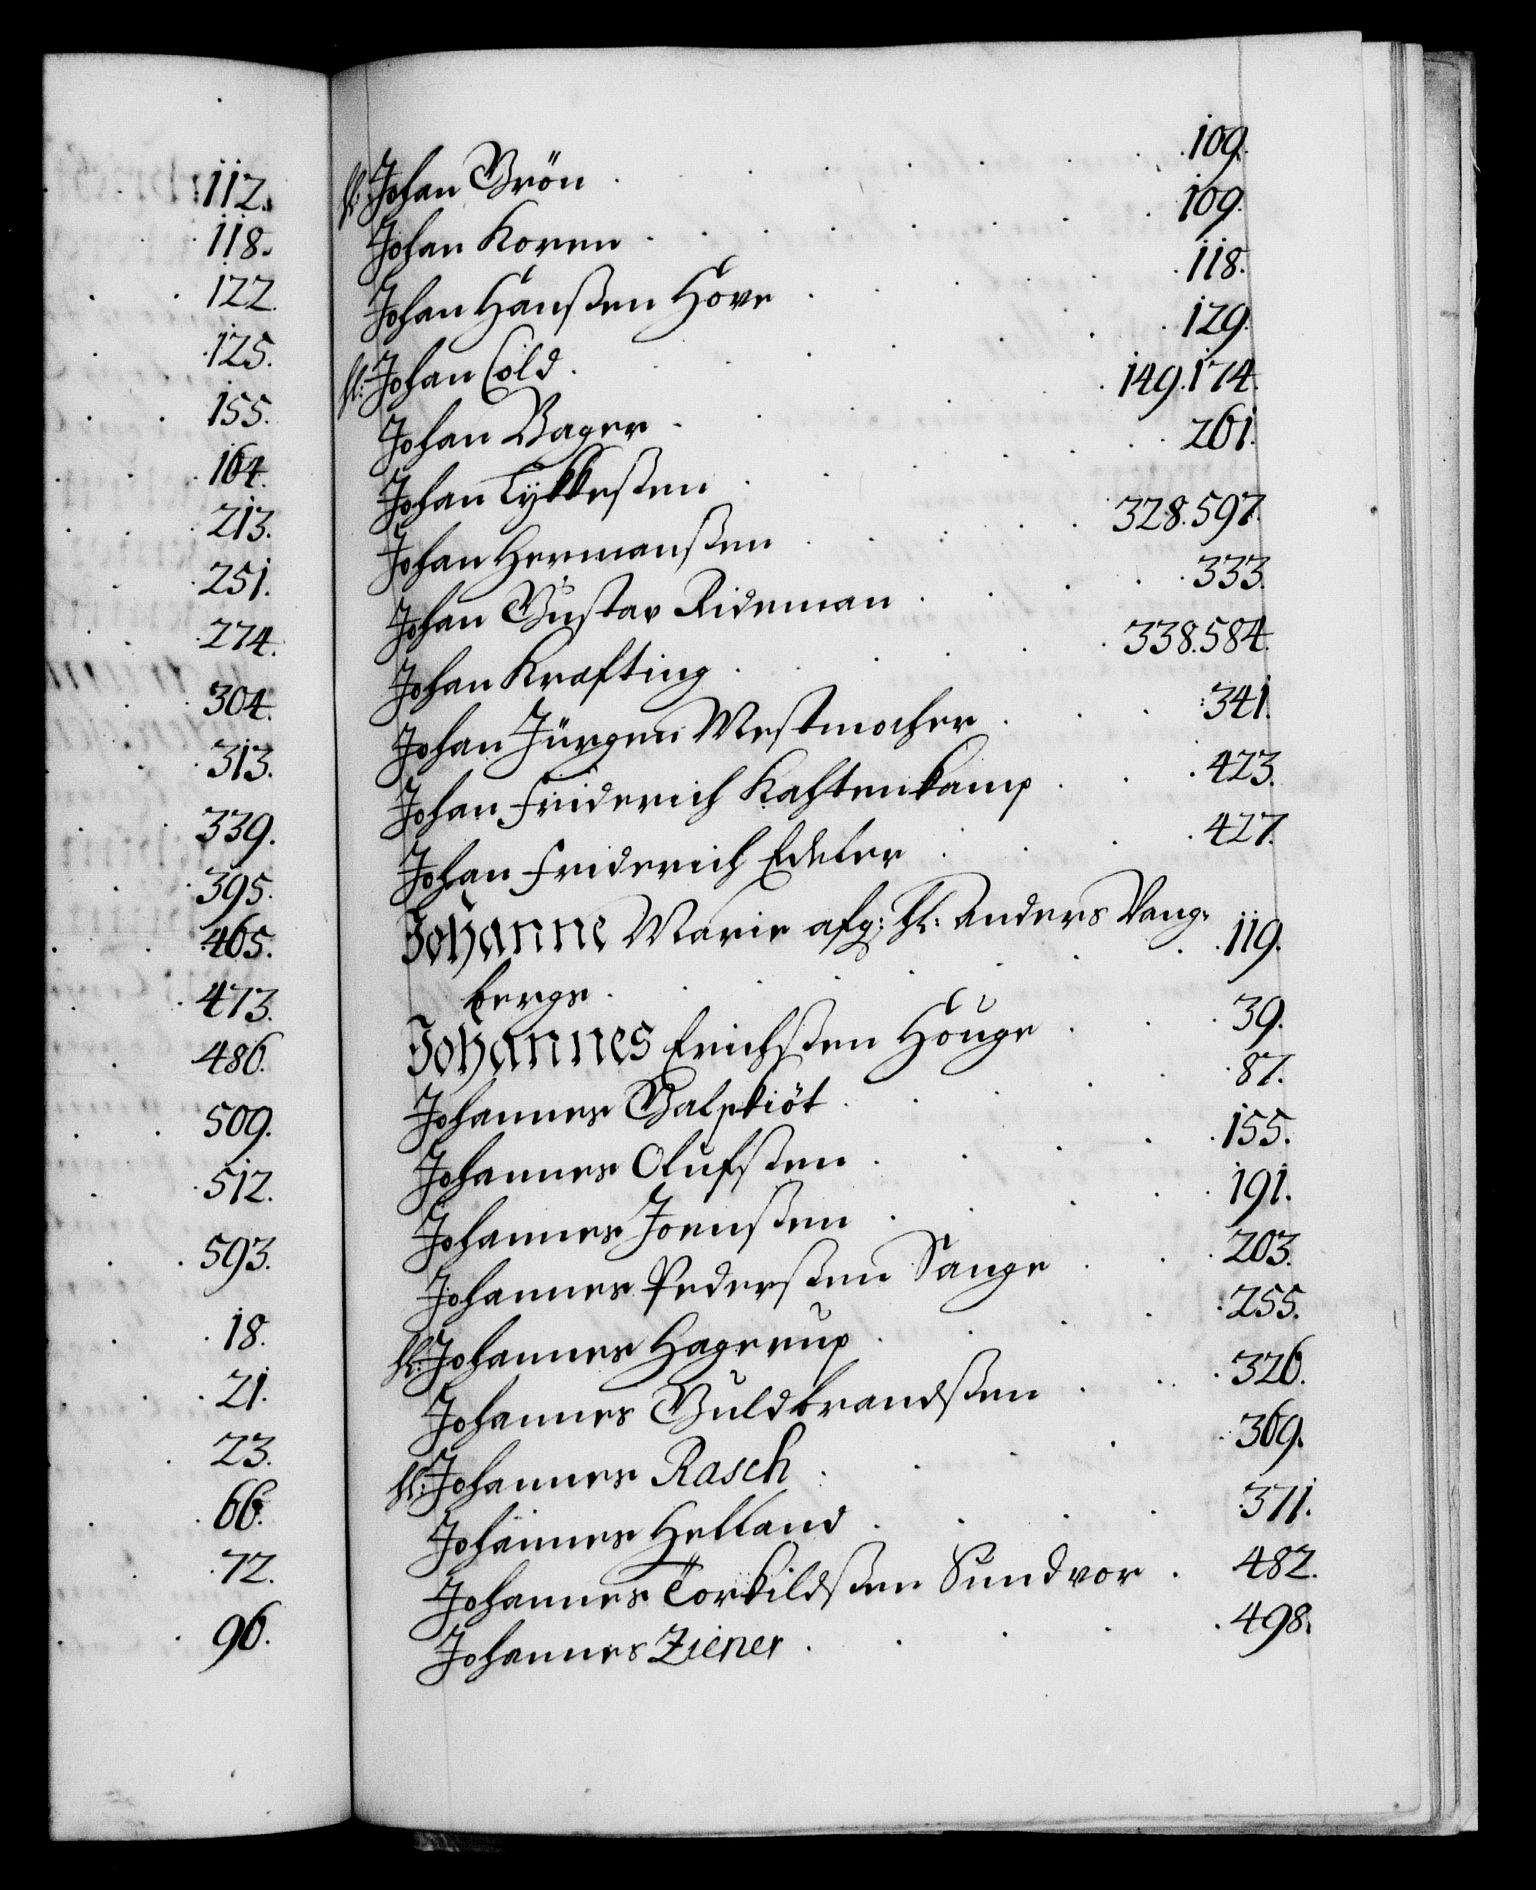 112.
118.
122.
125.
155.
164.
213.
251.
274.
304.
313.
339.
395.
465.
473.
486.
509.
512.
593.
18.
21.
23.
66.
72.
96.
hl: Johan Grön . . . . . . 109.
Johan Koren . . . . . . 109.
Johan Hanßen Hove . . . . 118.
hl: Johan Cold . . . . . 129.
Johan Bager . . . . . 149. 174.
Johan Lykkeßen . . . . . 261.
Johan Hermanßen . . . . 328. 597.
Johan Gustav Rideman . . . . 333.
Johan Krafting . . . . 338. 584.
Johan Jürgen Westmocher . . . 341.
Johan Friderich Kahtenkamp . . . 423.
Johan Friderich Edeler . . . . 427.
Johanne Marie afg: hl: Anders Vang-
bergs . . . . . . 119.
Johannes Erichßen Houge . . . 39.
Johannes Galskiöt . . . . 87.
Johannes Olufsen . . . . 155.
Johannes Joenßen . . . . 191.
Johannes Pederßen Sange . . . 203.
hl: Johannes Hagerup . . . . 255.
Johannes Guldbrandßen . . . 326.
hl: Johannes Rasch . . . . 369.
Johannes Helland . . . . 371.
Johannes Torkildßen Sundvor . 482.
Johannes Ziener . . . . . 498.